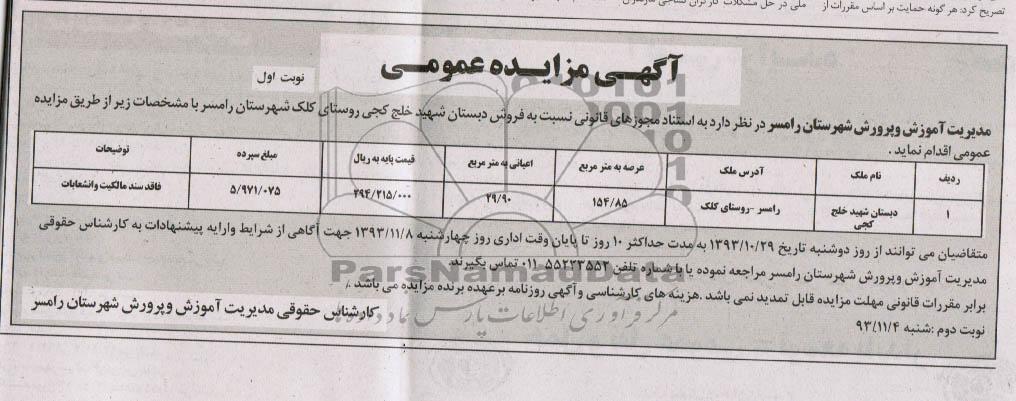 تصریح کرد: هر گونه حمایت بر اساس مقررات از
ملی در حل مشکلات کارگران نساجی مازندران
آگهی مزایده عمومی
نوبت اول
مدیریت آموزش وپرورش شهرستان رامسر در نظر دارد به استناد مجوزهای قانونی نسبت به فروش دبستان شهید خلج کجی روستای کلک شهرستان رامسر با مشخصات زیر از طریق مزایده
عمومی اقدام نماید .
ردیف نام ملک آدرس ملک عرصه به متر مربع اعیانی به متر مربع قیمت پایه به ریال مبلغ سپرده توضیحات
۱ دبستان شهید خلج کجی رامسر -روستای کلک ۱۵۴/۸۵ ۲۹/۹۰ ۲۹۴/۲۱۵/۰۰۰ ۵/۹۷۱/۰۷۵ فاقد سند مالکیت وانشعابات
متقاضیان می توانند از روز دوشنبه تاریخ ۱۳۹۳/۱۰/۲۹ به مدت حداکثر ۱۰ روز تا پایان وقت اداری روز چهارشنبه ۱۳۹۳/۱۱/۸ جهت آگاهی از شرایط وارایه پیشنهادات به کارشناس حقوقی
مدیریت آموزش وپرورش شهرستان رامسر مراجعه نموده یا با شماره تلفن ۵۵۲۲۳۵۵۲-۰۱۱ تماس بگیرند.
برابر مقررات قانونی مهلت مزایده قابل تمدید نمی باشد .هزینه های کارشناسی وآگهی روزنامه برعهده برنده مزایده می باشد ./
نوبت دوم :شنبه ۹۳/۱۱/۴
کارشناس حقوقی مدیریت آموزش وپرورش شهرستان رامسر
ParsNamadData